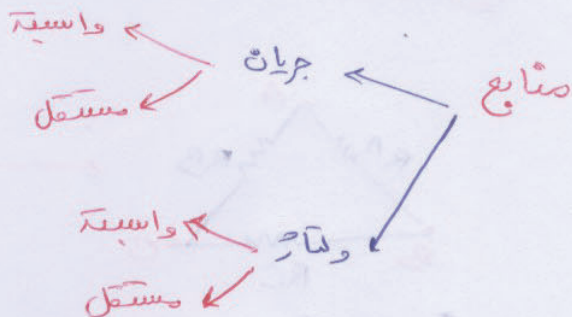 منابع
جریان
وابسته
مستقل
ولتاژ
وابسته
مستقل